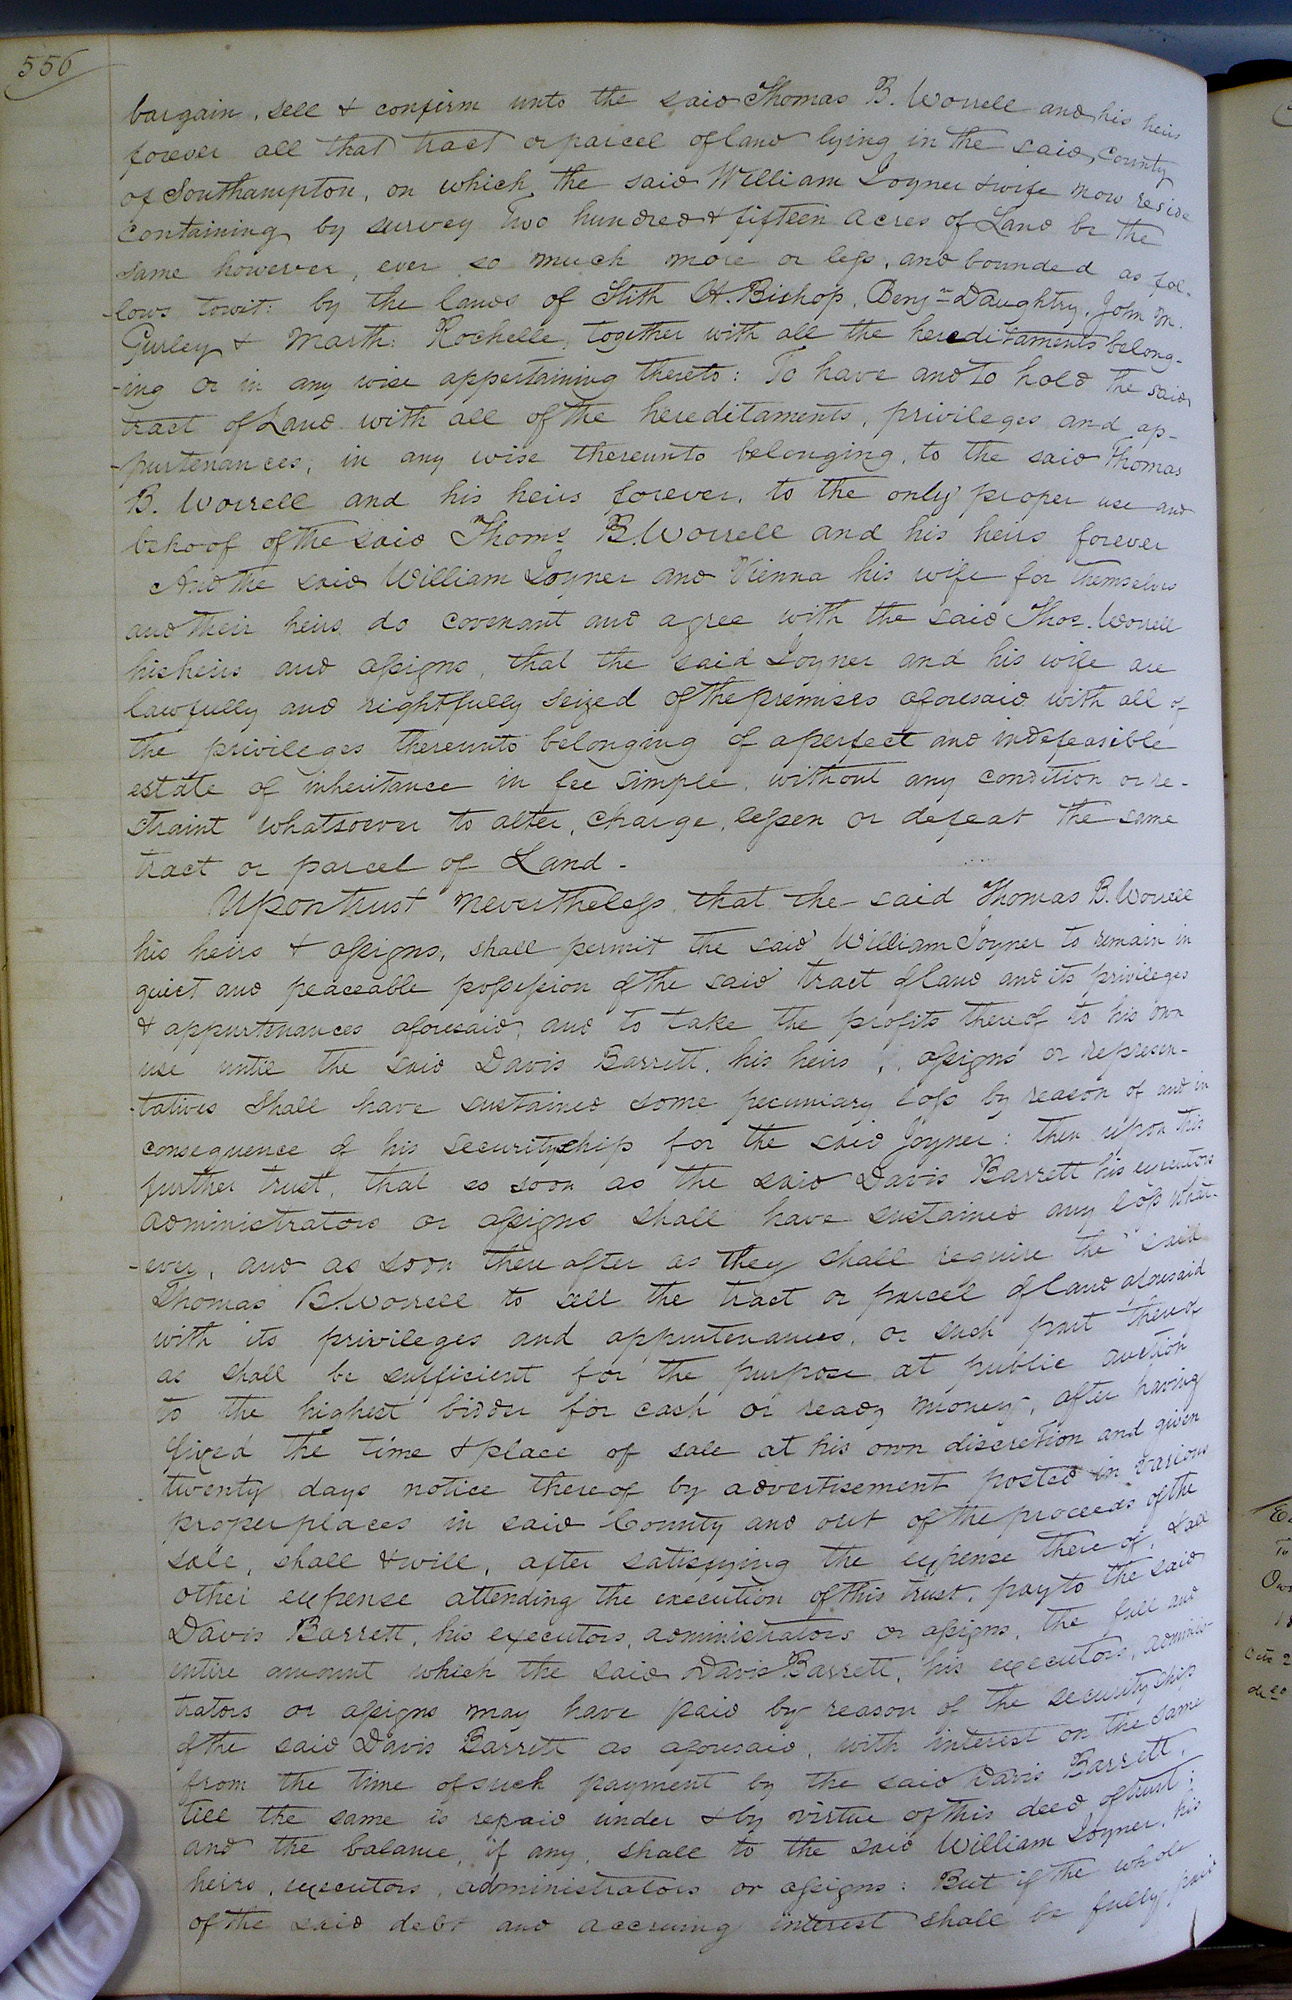 556
bargain, sell & confirm unto the said Thomas B. Worrell and his heirs
forever all that tract or parcel of land lying in the said County
of Southampton, on which the said William Joyner & wife now reside
containing by survey Two hundred & fifteen acres of Land be the
same however, ever so much more or less, and bounded as fol-
-lows towit: by the lands of Stith H. Bishop, Benjn Daughtry, John M.
Gurley & Marth: Rochelle, together with all the hereditaments belong-
-ing or in any wise appertaining thereto: To have and to hold the said
tract of Land with all of the hereditaments, privileges and ap-
-purtenances, in any wise thereunto belonging, to the said Thomas
B. Worrell and his heirs forever, to the only proper use and
behoof of the said Thoms B. Worrell and his heirs forever
And the said William Joyner and Vienna his wife for themselves
and their heirs do covenant and agree with the said Thos. Worrell
his heirs and assigns, that the said Joyner and his wife are
lawfully and rightfully seized of the premises aforesaid with all of
the privileges thereunto belonging of a perfect and indefeasible
estate of inheritance in fee simple, without any condition or re-
straint whatsoever to alter, charge, lessen or defeat the same
tract or parcel of Land -
Upon trust nevertheless that the said Thomas B. Worrell
his heirs & assigns, shall permit the said William Joyner to remain in
quiet and peaceable possession of the said tract of land and its privileges
& appurtenances aforesaid, and to take the profits thereof to his own
use until the said Davis Barrett, his heirs, assigns or represen-
-tatives shall have sustained some pecuniary loss by reason of and in
consequence of his securityship for the said Joyner: then upon this
further trust, that so soon as the said Davis Barrett his executors
administrators or assigns shall have sustained any loss what-
-ever, and as soon thereafter as they shall require the said
Thomas B. Worrell to sell the tract or parcel of land aforesaid
with its privileges and appurtenances, or such part thereof
as shall be sufficient for the purpose at public auction
to the highest bidder for cash or ready money, after having
fixed the time & place of sale at his own discretion and given
twenty days notice thereof by advertisement posted in various
proper places in said County and out of the proceeds of the
sale, shall & will, after satisfying the expense thereof, & all
other expense attending the execution of this trust, pay to the said
Davis Barrett, his executors, administrators or assigns, the full and
entire amount which the said Davis Barrett, his executors, adminis-
trators or assigns may have paid by reason of the securityship
of the said Davis Barrett as aforesaid, with interest on the same
from the time of such payment by the said Davis Barrett,
till the same is repaid under & by virtue of this deed of trust;
and the balance, if any, shall to the said William Joyner, his
heirs, executors, administrators or assigns: But if the whole
of the said debt and accruing interest shall be fully paid